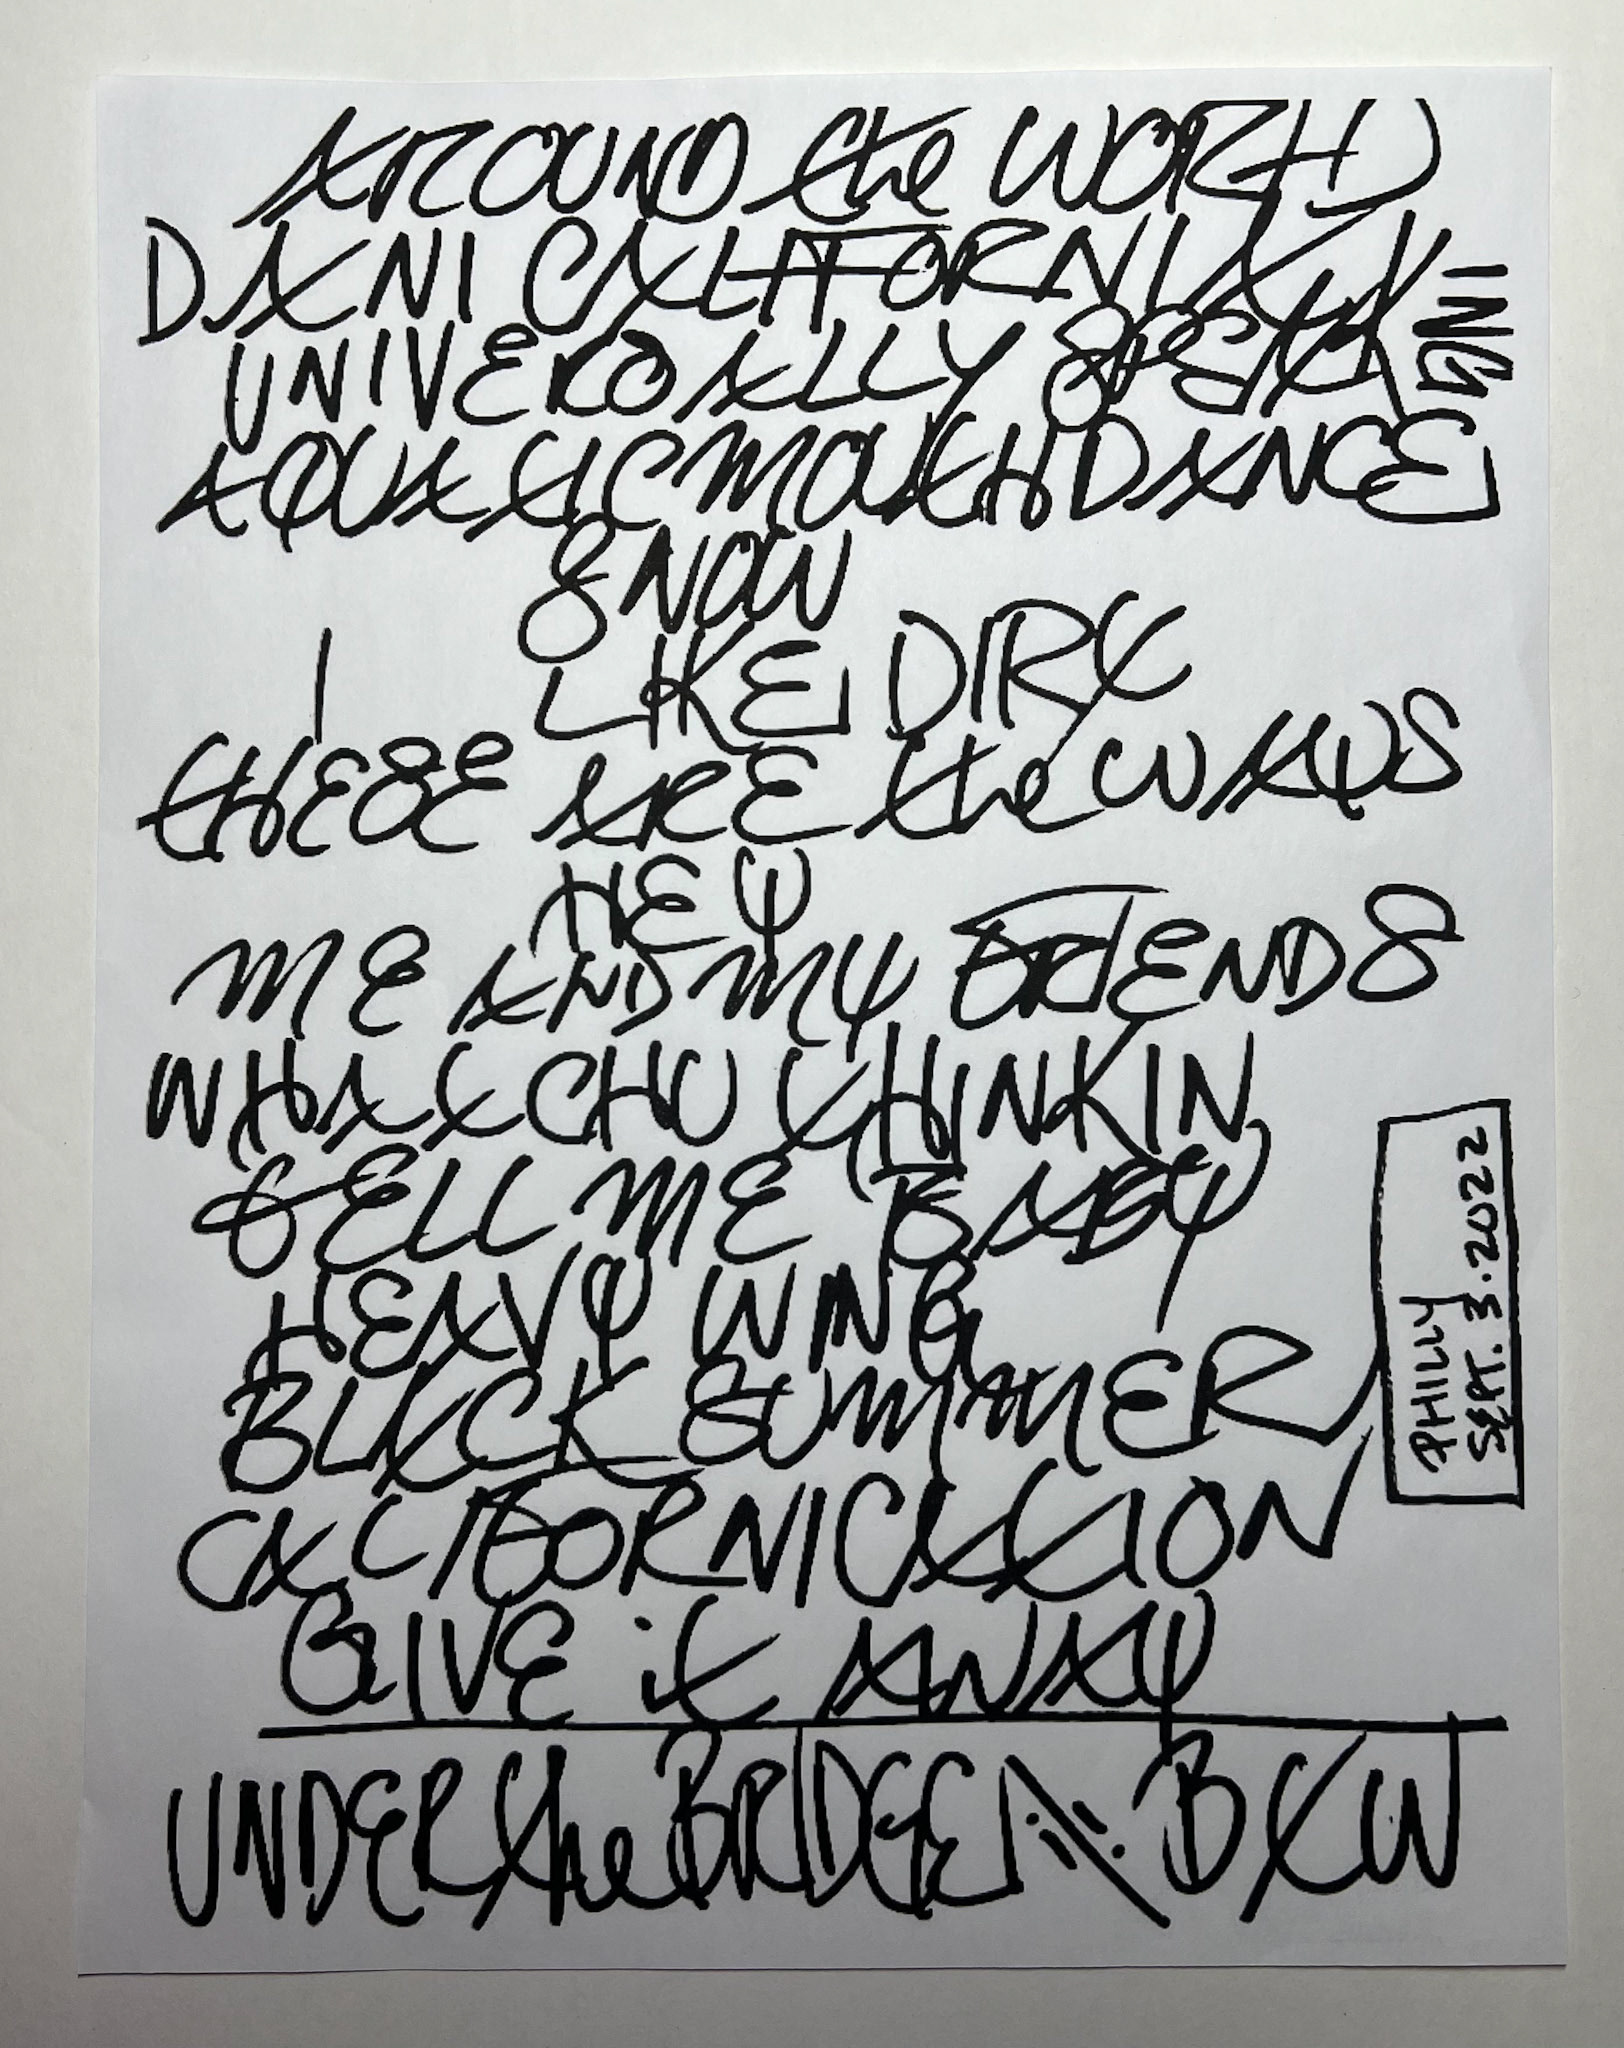 AROUND the WORLD
DANI CALIFORNIA
UNIVERSALLY SPEAKING
AQUATIC MOUTH DANCE
SNOW
I LIKE DIRT
THESE ARE the WAYS
HEY
ME AND MY FRIENDS
WHATCHU THINKIN
TELL ME BABY
HEAVY WING
BLACK SUMMER
CALIFORNICATION
GIVE it AWAY
UNDER the BRIDGE BYW
PHILLY
SEPT. 3. 2022